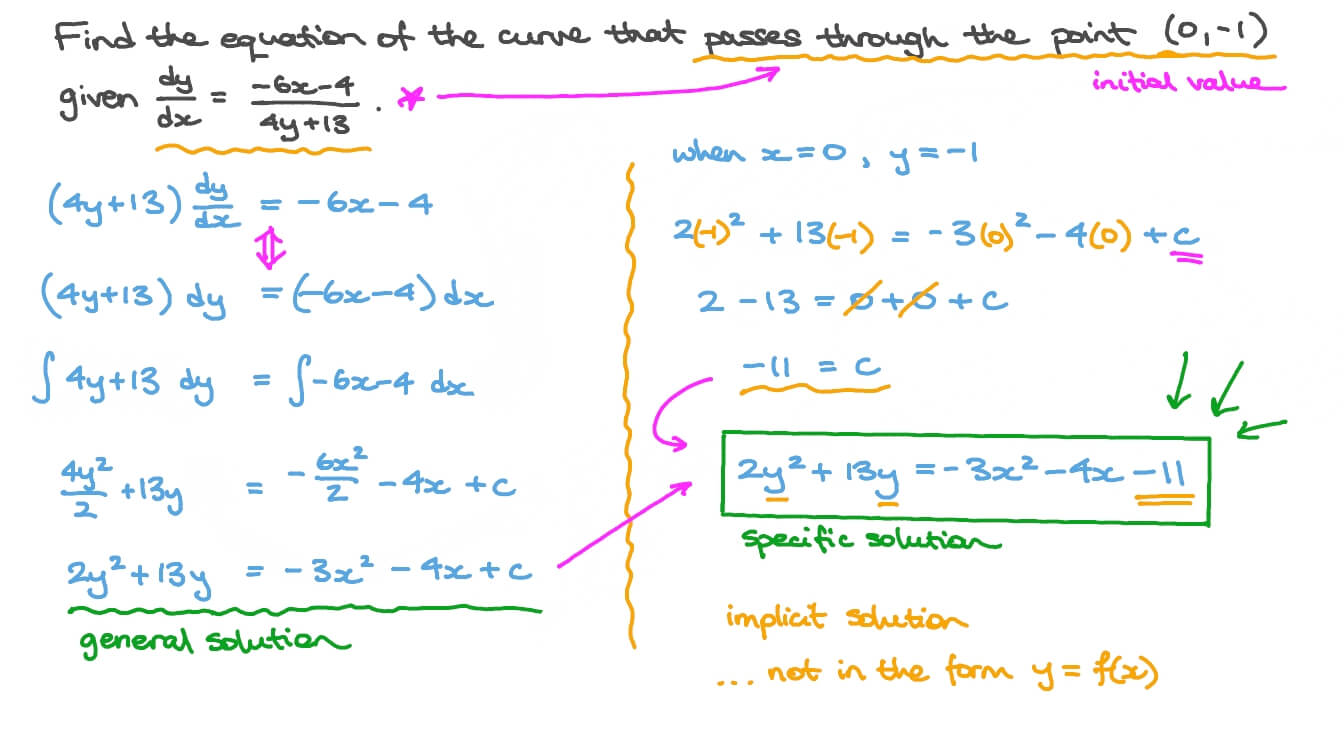 Find the equation of the curve that passes through the point (0,-1)
initial value
given dy/dx = (-6x-4)/(4y+13) . *
(4y+13) dy/dx = -6x-4
(4y+13) dy = (-6x-4) dx
∫ 4y+13 dy = ∫ -6x-4 dx
4y²/2 + 13y = - 6x²/2 - 4x + c
2y² + 13y = - 3x² - 4x + c
general solution
when x=0, y=-1
2(-1)² + 13(-1) = -3(0)² - 4(0) + c
2 - 13 = 0 + 0 + c
-11 = c
2y² + 13y = -3x² - 4x - 11
specific solution
implicit solution
... not in the form y = f(x)